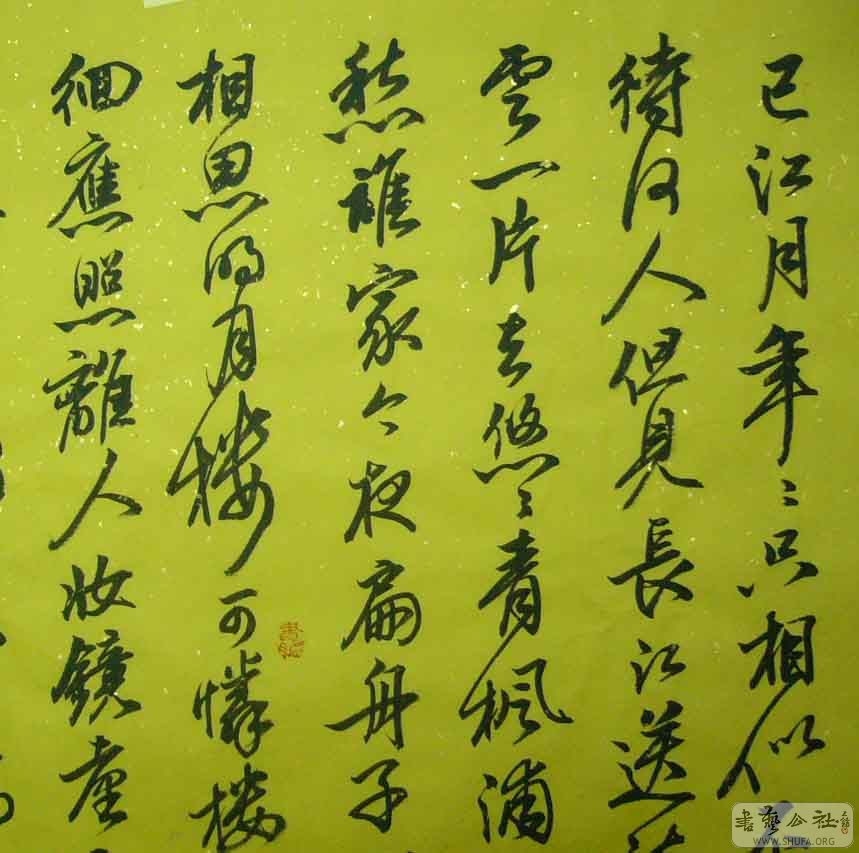 已江月年〻只相似
待何人但見長江送流
雲一片去悠〻青楓浦
愁誰家今夜扁舟子
相思明月樓可憐樓
徊應照離人妝鏡臺
書藝公社
WWW.SHUFA.ORG